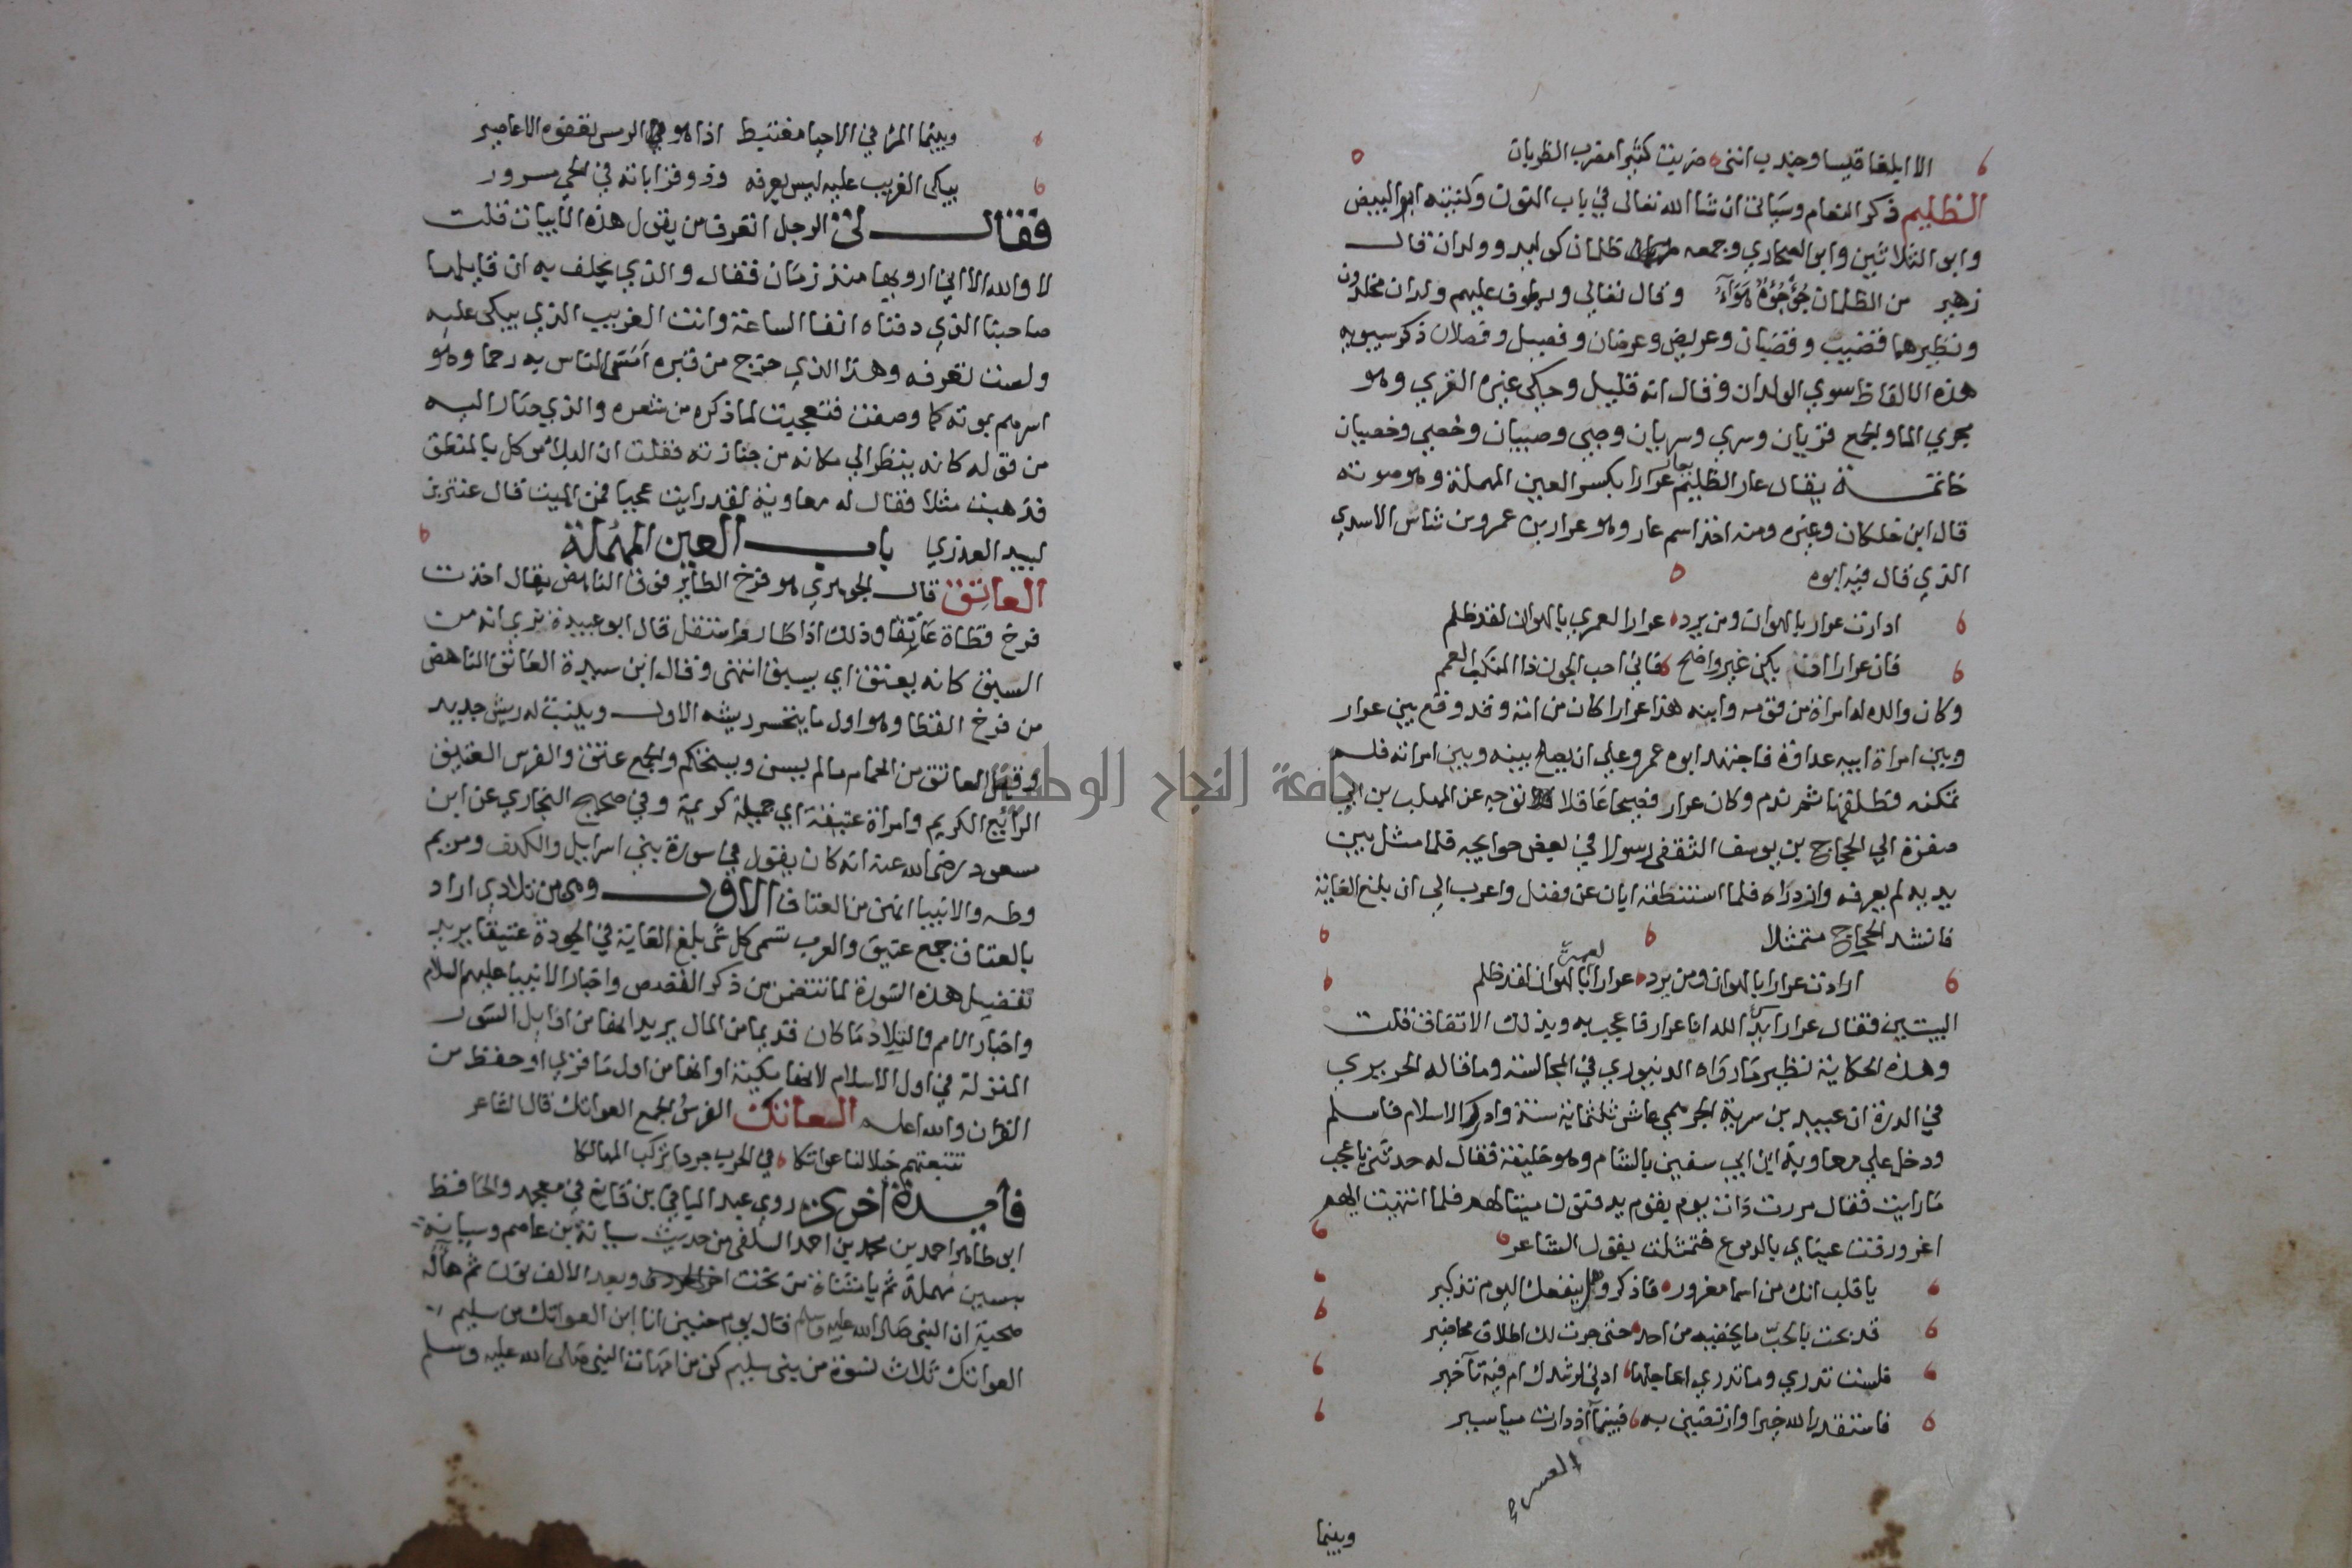 الا ابلغا قيسا وجندب انني ضربت كثيرا مضرب الظربان
الظليم ذكر النعام وسياتي ان شا الله تعالى في باب النون وكنيته ابو البيض
وابو الثلاثين وابو الصحاري وجمعه ظلمان كوليد وولدان قال
زهير من الظلمان جؤجؤه هواء وقال تعالي ويطوف عليهم ولدان مخلدون
ونظيرهما قضيب وقضبان وعريض وعرضان وفصيل وفصلان ذكر سيبويه
هذه الالفاظ سوي الولدان وقال انه قليل وحكي غيره القري وهو
مجري الما والجمع قريان وسري وسريان وصبي وصبيان وخصي وخصيان
خاتمة يقال عار الظليم يعار عرارا بكسر العين المهملة وهو صوته
قال ابن خلكان وغيره ومنه اخذ اسم عار وهو عرار بن عمرو بن شاس الاسدي
الذي قال فيه ابوه
ادارت عرار بالهوان ومن يرد عرارا لعمري بالهوان لقد ظلم
فان عرارا ان يكن غير واضح فاني احب الجون ذا المنكب العمم
وكان والده له امراة من قومه وابنه هذا عرارا كان من امة وقد وقع بين عرار
وبين امراة ابيه عداوة فاجتهد ابوه عمرو علي ان يصلح بينه وبين امراته فلم
تمكنه فطلقها ثم ندم وكان عرار فصيحا عاقلا توجه عن المهلب بن ابي
صفرة الي الحجاج بن يوسف الثقفي رسولا في بعض حوايجه فلما مثل بين
يديه لم يعرفه وازدراه فلما استنطقه ابان عن وفضل واعرب الي ان بلغ الغاية
فانشد الحجاج متمثلا
ارادت عرارا بالهوان ومن يرد عرارا لعمري بالهوان لقد ظلم
البيتين فقال عرار ايد الله انا عرار فاعجب به وبذلك الاتفاق قلت
وهذه الحكاية نظير ما رواه الدينوري في المجالسة وما قاله الحريري
في الدرة ان عبيد بن سرية الجرهمي عاش ثلثماية سنة وادرك الاسلام فاسلم
ودخل علي معاوية ابن ابي سفين بالشام وهو خليفة فقال له حدثني باعجب
ما رايت فقال مررت ذات يوم بقوم يدفنون ميتا لهم فلما انتهيت اليهم
اغرورقت عيناي بالدموع فتمثلت بقول الشاعر
يا قلب انك من اسما مغرور فاذكر وهل ينفعك اليوم تذكير
قد بحت بالحب ما يخفيه من احد حتي جرت لك اطلاق محاضير
فلست تدري وما تدري اعاجلها ادني لرشدك ام فيه تآخير
فاستقدر الله خيرا وارتضين به فبينما اذ دارت مياسير
العسر
وبينما
وبينما المرء في الاحيا مغتبط اذا هو في الرمس تعفوه الاعاصير
يبكي الغريب عليه ليس يعرفه وذو قراباته في الحي مسرور
فقال لي الرجل اتعرف من يقول هذه الابيات قلت
لا والله الا اني ارويها منذ زمان فقال والذي يحلف به ان قايلها
صاحبنا الذي دفناه انفا الساعة وانت الغريب الذي يبكي عليه
ولست تعرفه وهذا الذي خرج من قبره امس الناس به رحما وهو
اسرهم بموته كما وصفت فتعجبت لما ذكره من شعره والذي صار اليه
من قوله كانه ينظر الي مكانه من جنازته فقلت ان البلا موكل بالمنطق
فذهبت مثلا فقال له معاوية لقد رايت عجبا فمن الميت قال عنتر بن
لبيد العذري باب العين المهملة
العاتق قال الجوهري هو فرخ الطاير فوق الناهض يقال اخذت
فرخ قطاة عاتقا وذلك اذا طار واستقل قال ابو عبيدة نري انه من
السبق كانه يعتق اي يسبق انتهي وقال ابن سيدة العاتق الناهض
من فرخ القطا وهو اول ما ينحسر ريشه الاول وينبت له ريش جديد
وقيل العاتق من الحمام ما لم يسن ويستحكم والجمع عتق والفرس العتيق
الرائع الكريم وامراة عتيقة اي جميلة كريمة وفي صحيح البخاري عن ابن
مسعود رضي الله عنه انه كان يقول في سورة بني اسرايل والكهف ومريم
وطه والانبيا انهن من العتاق الاول وهي من تلادي اراد
بالعتاق جمع عتيق والعرب تسمي كل شي بلغ الغاية في الجودة عتيقا يريد
تفضيل هذه السورة لما تتضمن من ذكر القصص واخبار الانبيا عليهم السلام
واخبار الامم والتلاد ما كان قديما من المال يريد انها من اوايل السور
المنزلة في اول الاسلام لانها مكية او انها من اول ما قري او حفظ من
القران والله اعلم العاتك الفرس والجمع العواتك قال الشاعر
نتبعهم خيلا لنا عواتكا في الحرب جردا تركب المهالكا
فايدة اخرى روي عبد الباقي بن قانع في معجمه والحافظ
ابو طاهر احمد بن محمد بن احمد السلفي من حديث سيابة بن عاصم وسيابة
بسين مهملة ثم يا مثناة من تحت وبعد الالف نون ثم هاء له
صحبة ان النبي صلي الله عليه وسلم قال يوم حنين انا ابن العواتك من سليم
العواتك ثلاث نسوة من بني سليم كن من امهات النبي صلي الله عليه وسلم
جامعة النجاح الوطنية